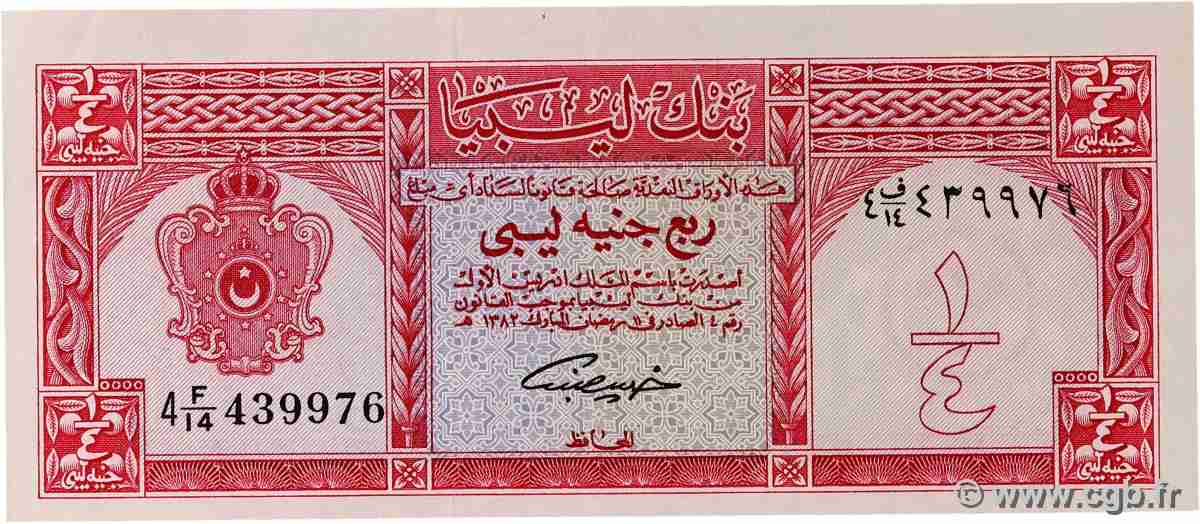 ١/٤
جنيه ليبي
بنك ليبيا
١/٤
جنيه ليبي
هذه الأوراق النقدية صالحة قانونا لسداد أي مبلغ
ف/١٤ ٤ ٤٣٩٩٧٦
ربع جنيه ليبي
أصدرت باسم الملك ادريس الأول
من بنك ليبيا بموجب القانون
رقم ٤ الصادر في ١١ رمضان المبارك ١٣٨٢ هـ
١/٤
0000
0000
4 F/14 439976
المحافظ
١/٤
جنيه ليبي
١/٤
جنيه ليبي
© www.cgb.fr